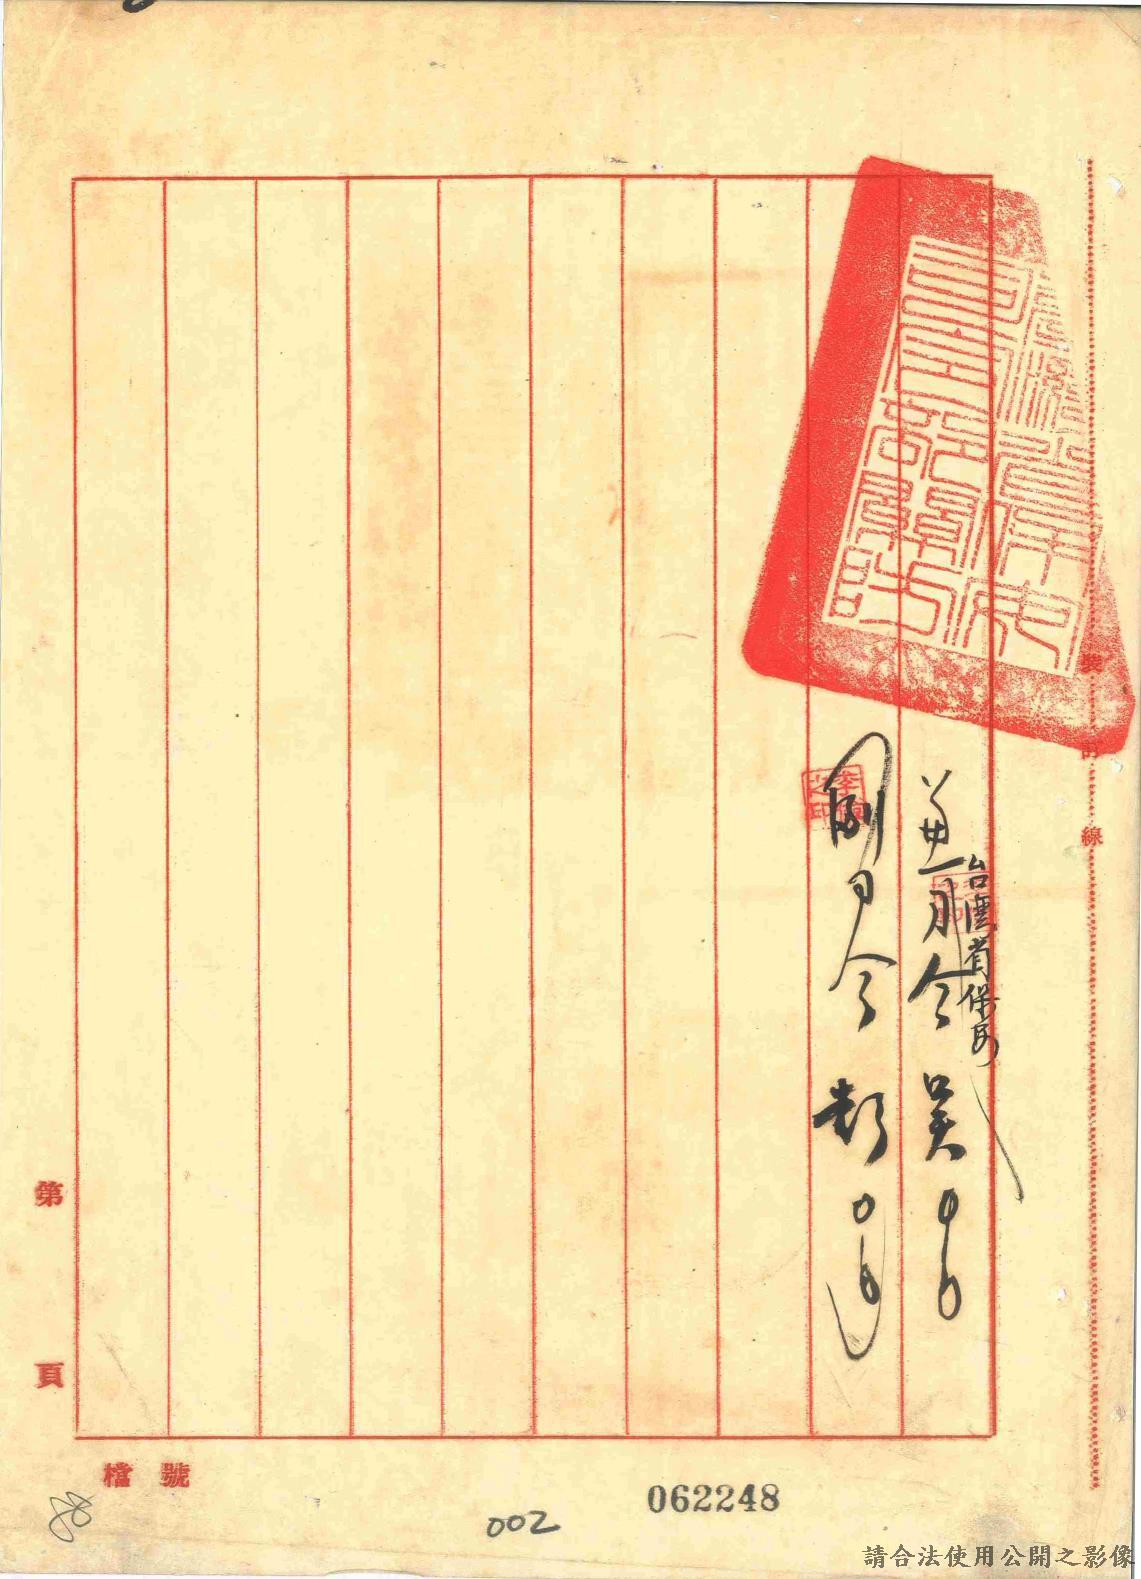 臺灣省保安司令部關防
兼司令吳〇〇
台灣省保
副司令彭〇〇
裝
訂
線
第
頁
檔號
062248
002
請合法使用公開之影像